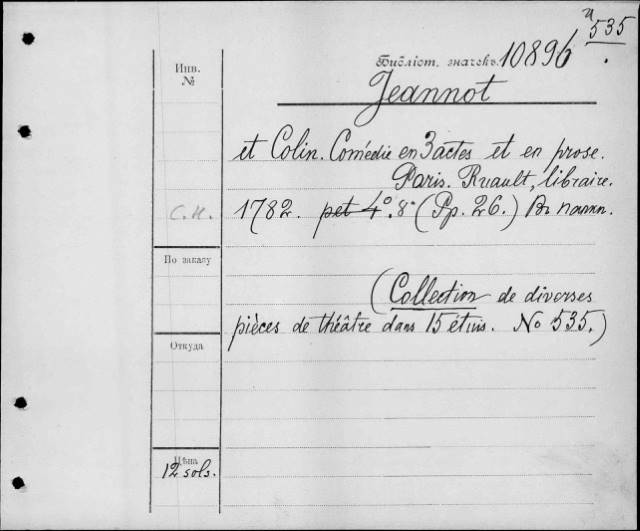 л 535
Инв.
№
Библіот. значекъ. 10896
Jeannot
et Colin. Comédie en 3 actes et en prose.
Paris. Ruault, libraire.
С.И. 1782. pet 4º. 8º (Pp. 26.) Въ папк.
По заказу
(Collection de diverses
pièces de théâtre dans 15 étuis. No 535.)
Откуда
Цѣна
12 sols.